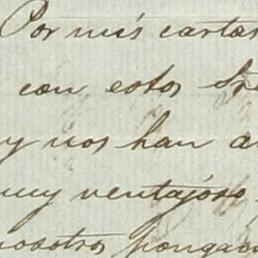 Por mis cartas
con estos
y nos han
muy ventajoso
nosotros pongan